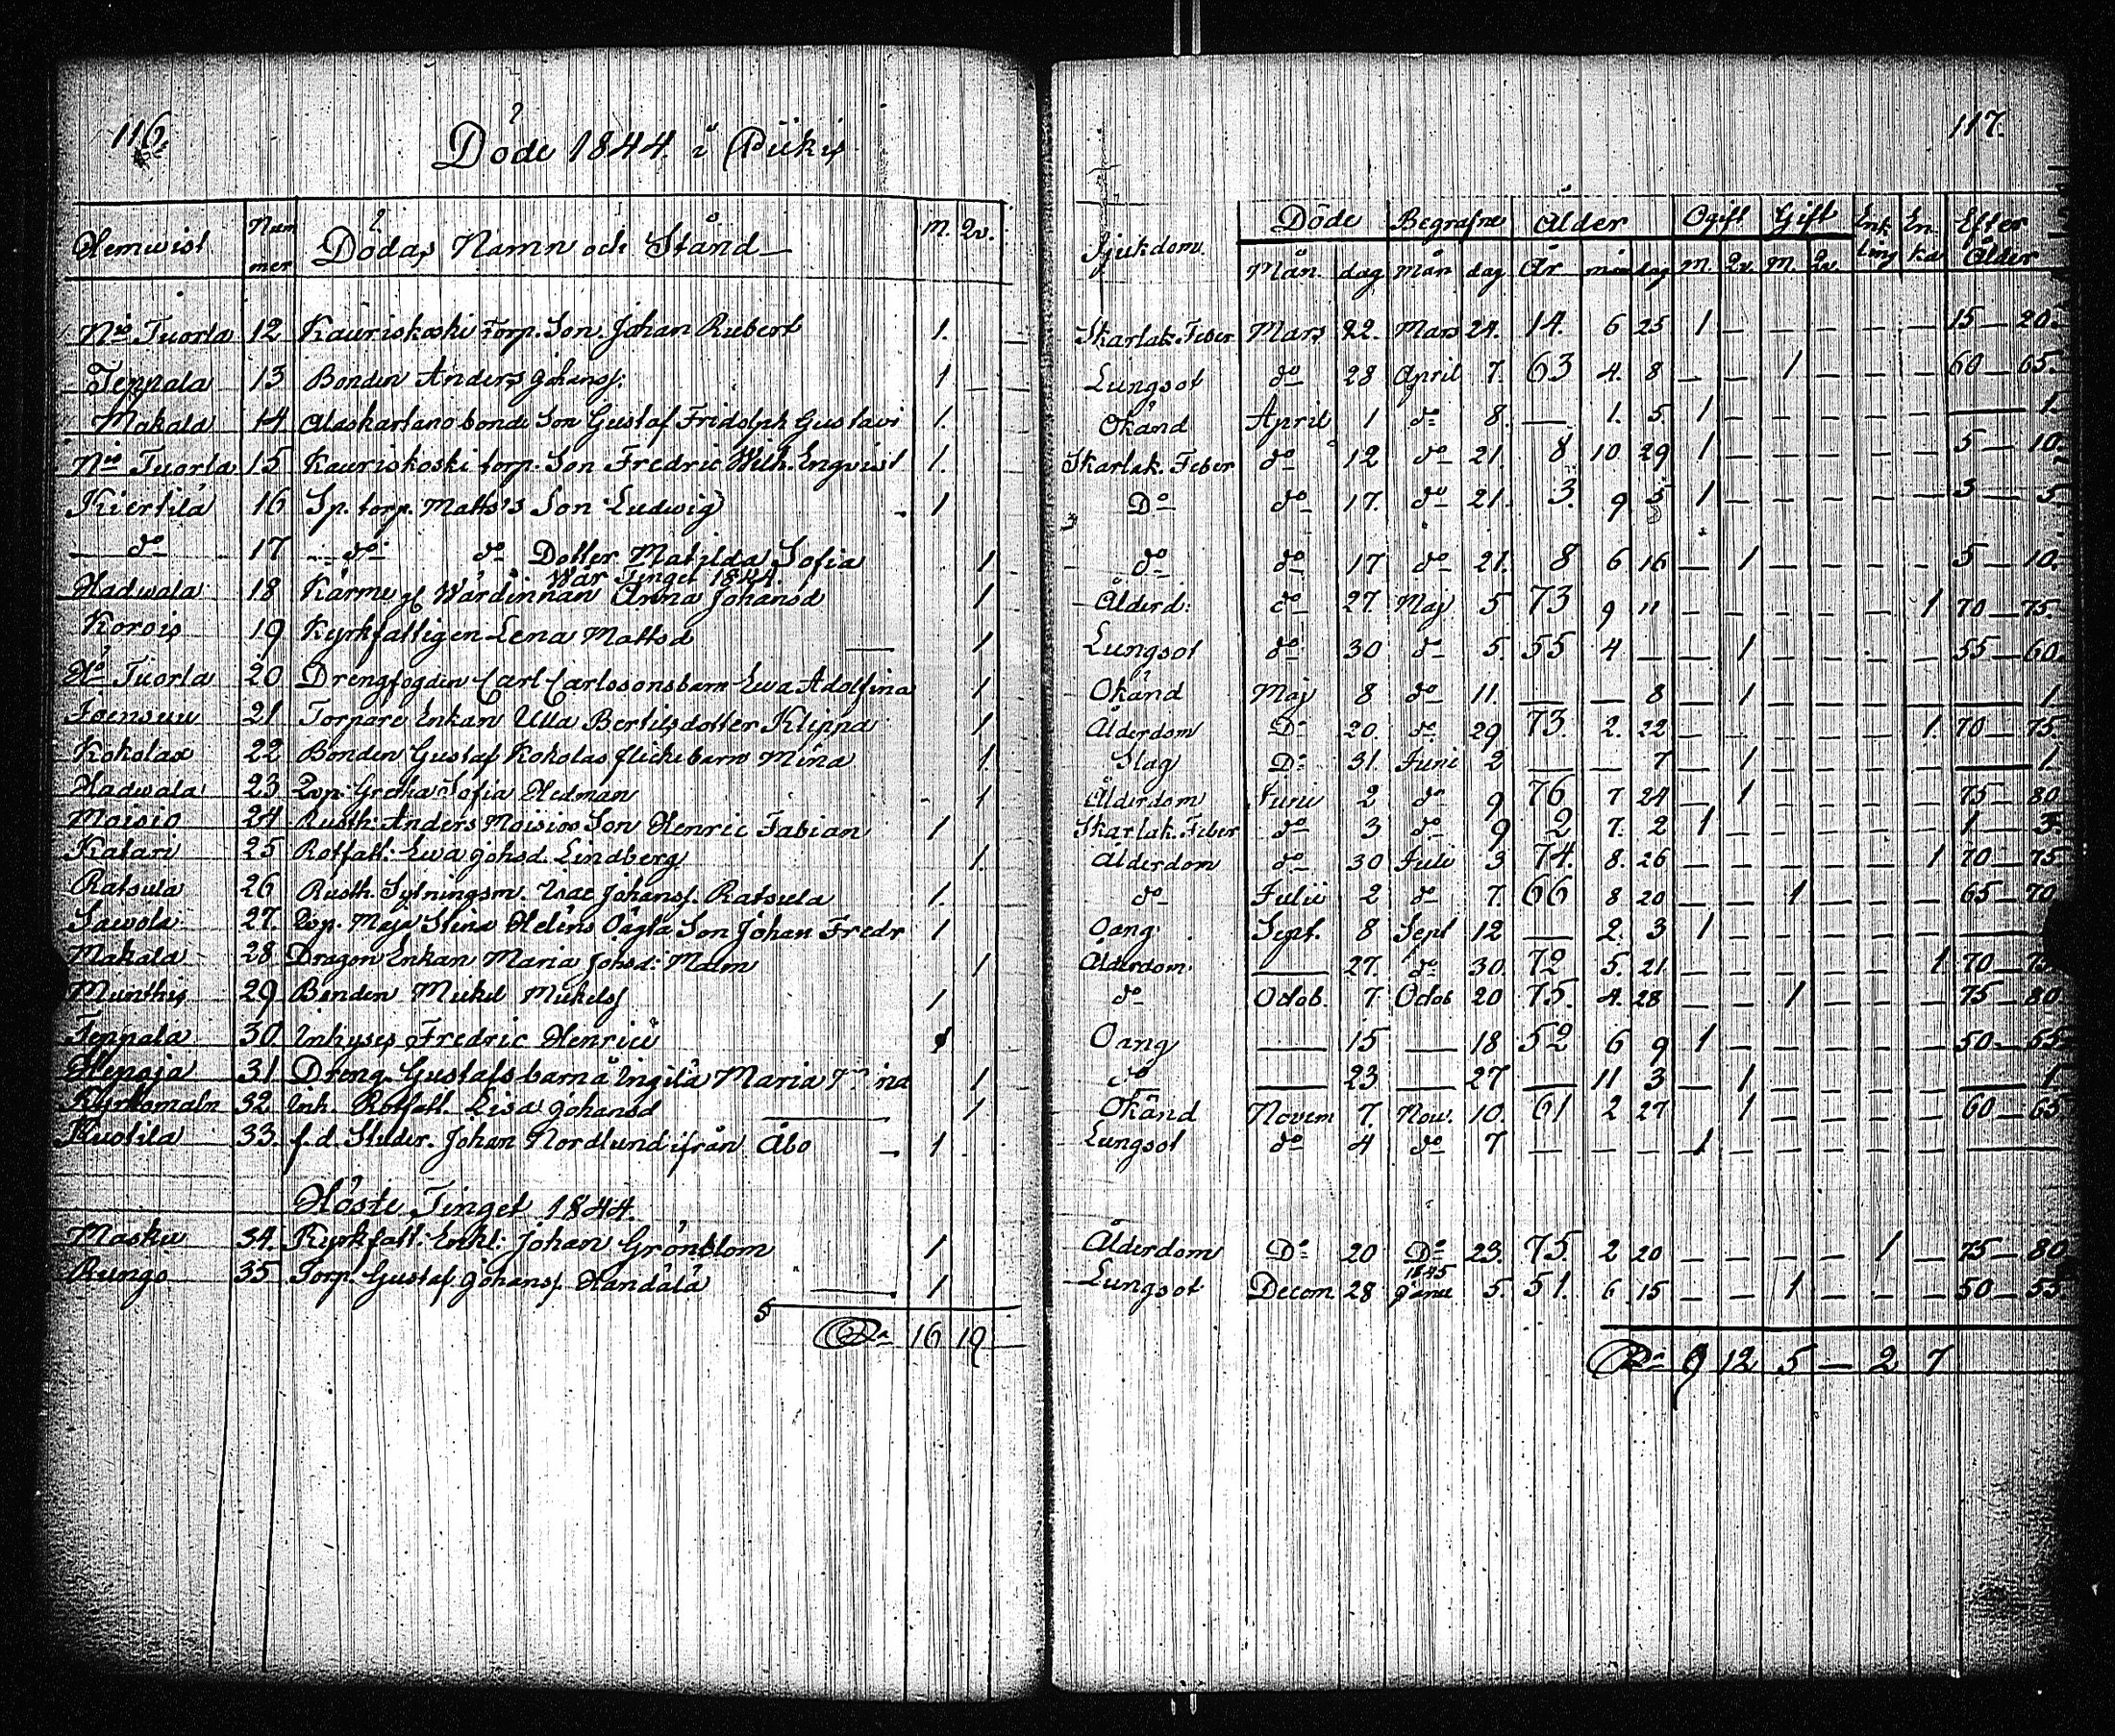 116.
Döde 1844 i Piikis
Hemvist Nummer Dödas Namn och Stånd M. Qv.
N:o Tuorla 12 Kauriskoski Torp. Son Johan Robert 1.
Teppala 13 Bonden Anders Johanss. 1
Makala 14. Alaskartano bonde Son Gustaf Fridolph Gustavs 1.
N:o Tuorla 15 Kauriskoski torp. Son Fredric Wilh. Engvist 1.
Kiertilä 16 Sp. torp. Matts's Son Ludwig 1
do 17 do do Dotter Matilda Sofia 1
Wår Tinget 1844.
Hadwala 18 Kärme gl Wärdinnan Anna Johansd 1
Korois 19 Kyrkfattigen Lena Mattsd 1
Tuorla 20 Drengfogden Carl Carlssons barn Ewa Adolfina 1.
Joensuu 21 Torpare Enkan Ulla Bertilsdotter Klippa 1
Kokolax 22 Bonden Gustaf Kokolas flickebarn Mina 1.
Hadwala 23 Qvp. Greta Sofia Hedman 1
Moisio 24 Rusth. Anders Moisios Son Henric Fabian 1
Katari 25 Rotfatt. Ewa Johsd. Lindberg 1.
Ratsula 26 Rusth. Sytningsm. Isac Johanss. Ratsula 1.
Sawola 27. Qvp. Maja Stina Heléns Oägta Son Johan Fredr 1
Makala 28 Dragon Enkan Maria Johsd: Malm 1
Munthis 29 Bonden Mickel Mickelss 1
Teppala 30. Inhyses Fredric Henric 1
Hengja 31 Dreng Gustafs barn Maria 1
32 Inh. Rotfatt. Lisa Johansd 1
Huotila 33. f.d. Studer. Johan Nordlund ifrån Åbo 1
Höste Tinget 1844.
Masku 34. Kyrkfatt: Enkl: Johan Grönblom 1
Rungo 35 Torp. Gustaf Johanss. Handala 1
16 19
117.
Sjukdom. Döde Begrafne Ålder Ogift Gift Enkling Enka Efter Ålder
Mån. dag mån dag År mån dag M. Qv. M. Qv.
Skarlak. Feber Mars 22. Mars 24. 14. 6 25 1 — — — — — 15 — 20.
Lungsot do 28 April 7. 63 4. 8 — — 1 — — — 60 — 65.
Okänd April 1 do 8. — 1. 5. 1 — — — — — — 1.
Skarlak. Feber do 12 do 21. 8 10 29 1 — — — — — 5 — 10.
Do do 17. do 21. 3. 9 5 1 — — — — — 3 — 5
do do 17 do 21. 8 6 16 — 1 — — — — 5 — 10.
Ålderd: do 27 Maj 5 73 9 11 — — — — — 1 70 — 75.
Lungsot do 30 do 5. 55 4 — — 1 — — — — 55 — 60.
Okänd Maj 8 do 11. — — 8 — 1 — — — — — 1.
Ålderdom Do 20. do 29 73. 2. 22 — — — — — 1. 70 — 75.
Slag Do 31. Juni 2 — — 7 — 1 — — — — — 1.
Ålderdom Juni 2 do 9 76 7 24 — 1 — — — — 75 — 80
Skarlak. Feber do 3 do 9 2 7. 2 1 — — — — — 1 — 3
Ålderdom do 30 Juli 3 74. 8. 26 — — — — — 1 70 — 75
do Julii 2 do 7. 66 8 20 — — 1 — — — 65 — 70
Oäng Sept. 8 Sept 12 — 2. 3 1 — — — — — —
Ålderdom — 27. do 30. 72 5. 21 — — — — — 1 70 — 75
do Octob. 7 Octob 20 75. 4. 28 — — 1 — — — 75 — 80
Oäng — 15 — 18 52 6 9 1 — — — — — 50 — 55
do — 23 — 27 — 11 3 — 1 — — — — — 1
Okänd Novem 7. Nov. 10. 61 2 27 1 — — — — 60 — 65
Lungsot do 4 do 7 — — — 1 — — — — — —
Ålderdom Do 20 Do 23. 75. 2 20 — — — — 1 — 75 — 80
1845
Lungsot Decem 28 Janu 5. 51. 6 15 — — 1 — — — 50 — 55
9 12 5 — 2 7